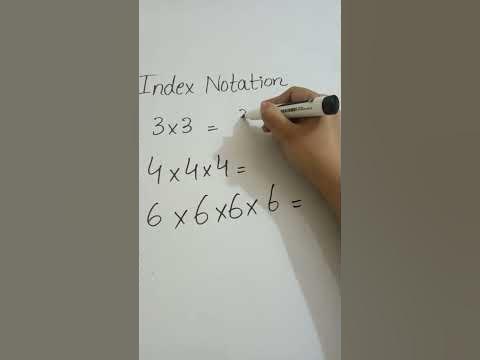 Index Notation
3×3 =
4×4×4=
6×6×6×6=